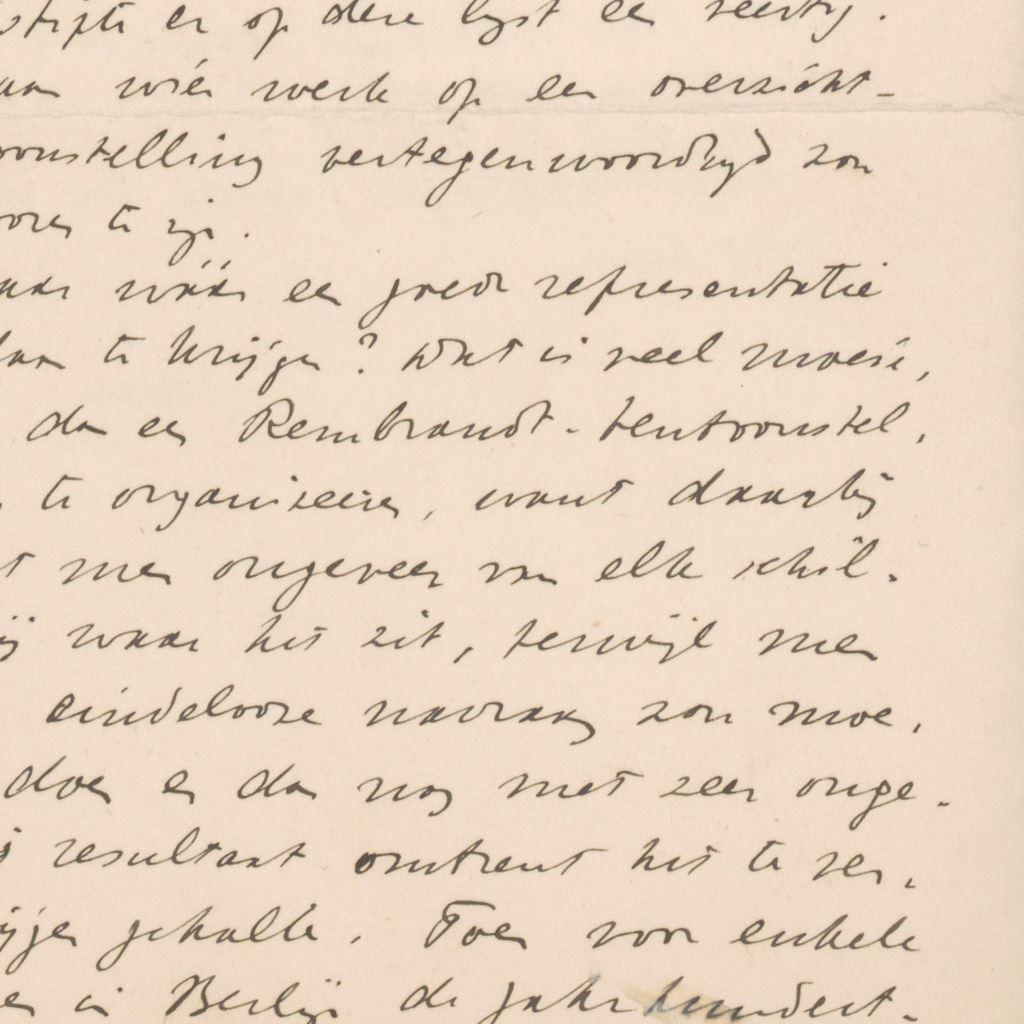 stipte er op deze lijst een veertig.
aan wiér werk op een overzicht-
oonstelling vertegenwoordigd zou
te zijn.
aar wáár een goede representatie
daar te krijgen? Dat is veel moeil,
dan een Rembrandt-tentoonstel,
te organiseeren, want daarbij
men ongeveer van elk schil-
ij waar het zit, terwijl men
eindelooze navraag zou moe,
doen en dan nog met zeer onge-
resultaat omtrent het te ver,
ijgen gehalte. Toen voor enkele
en in Berlijn de Jahrhundert-